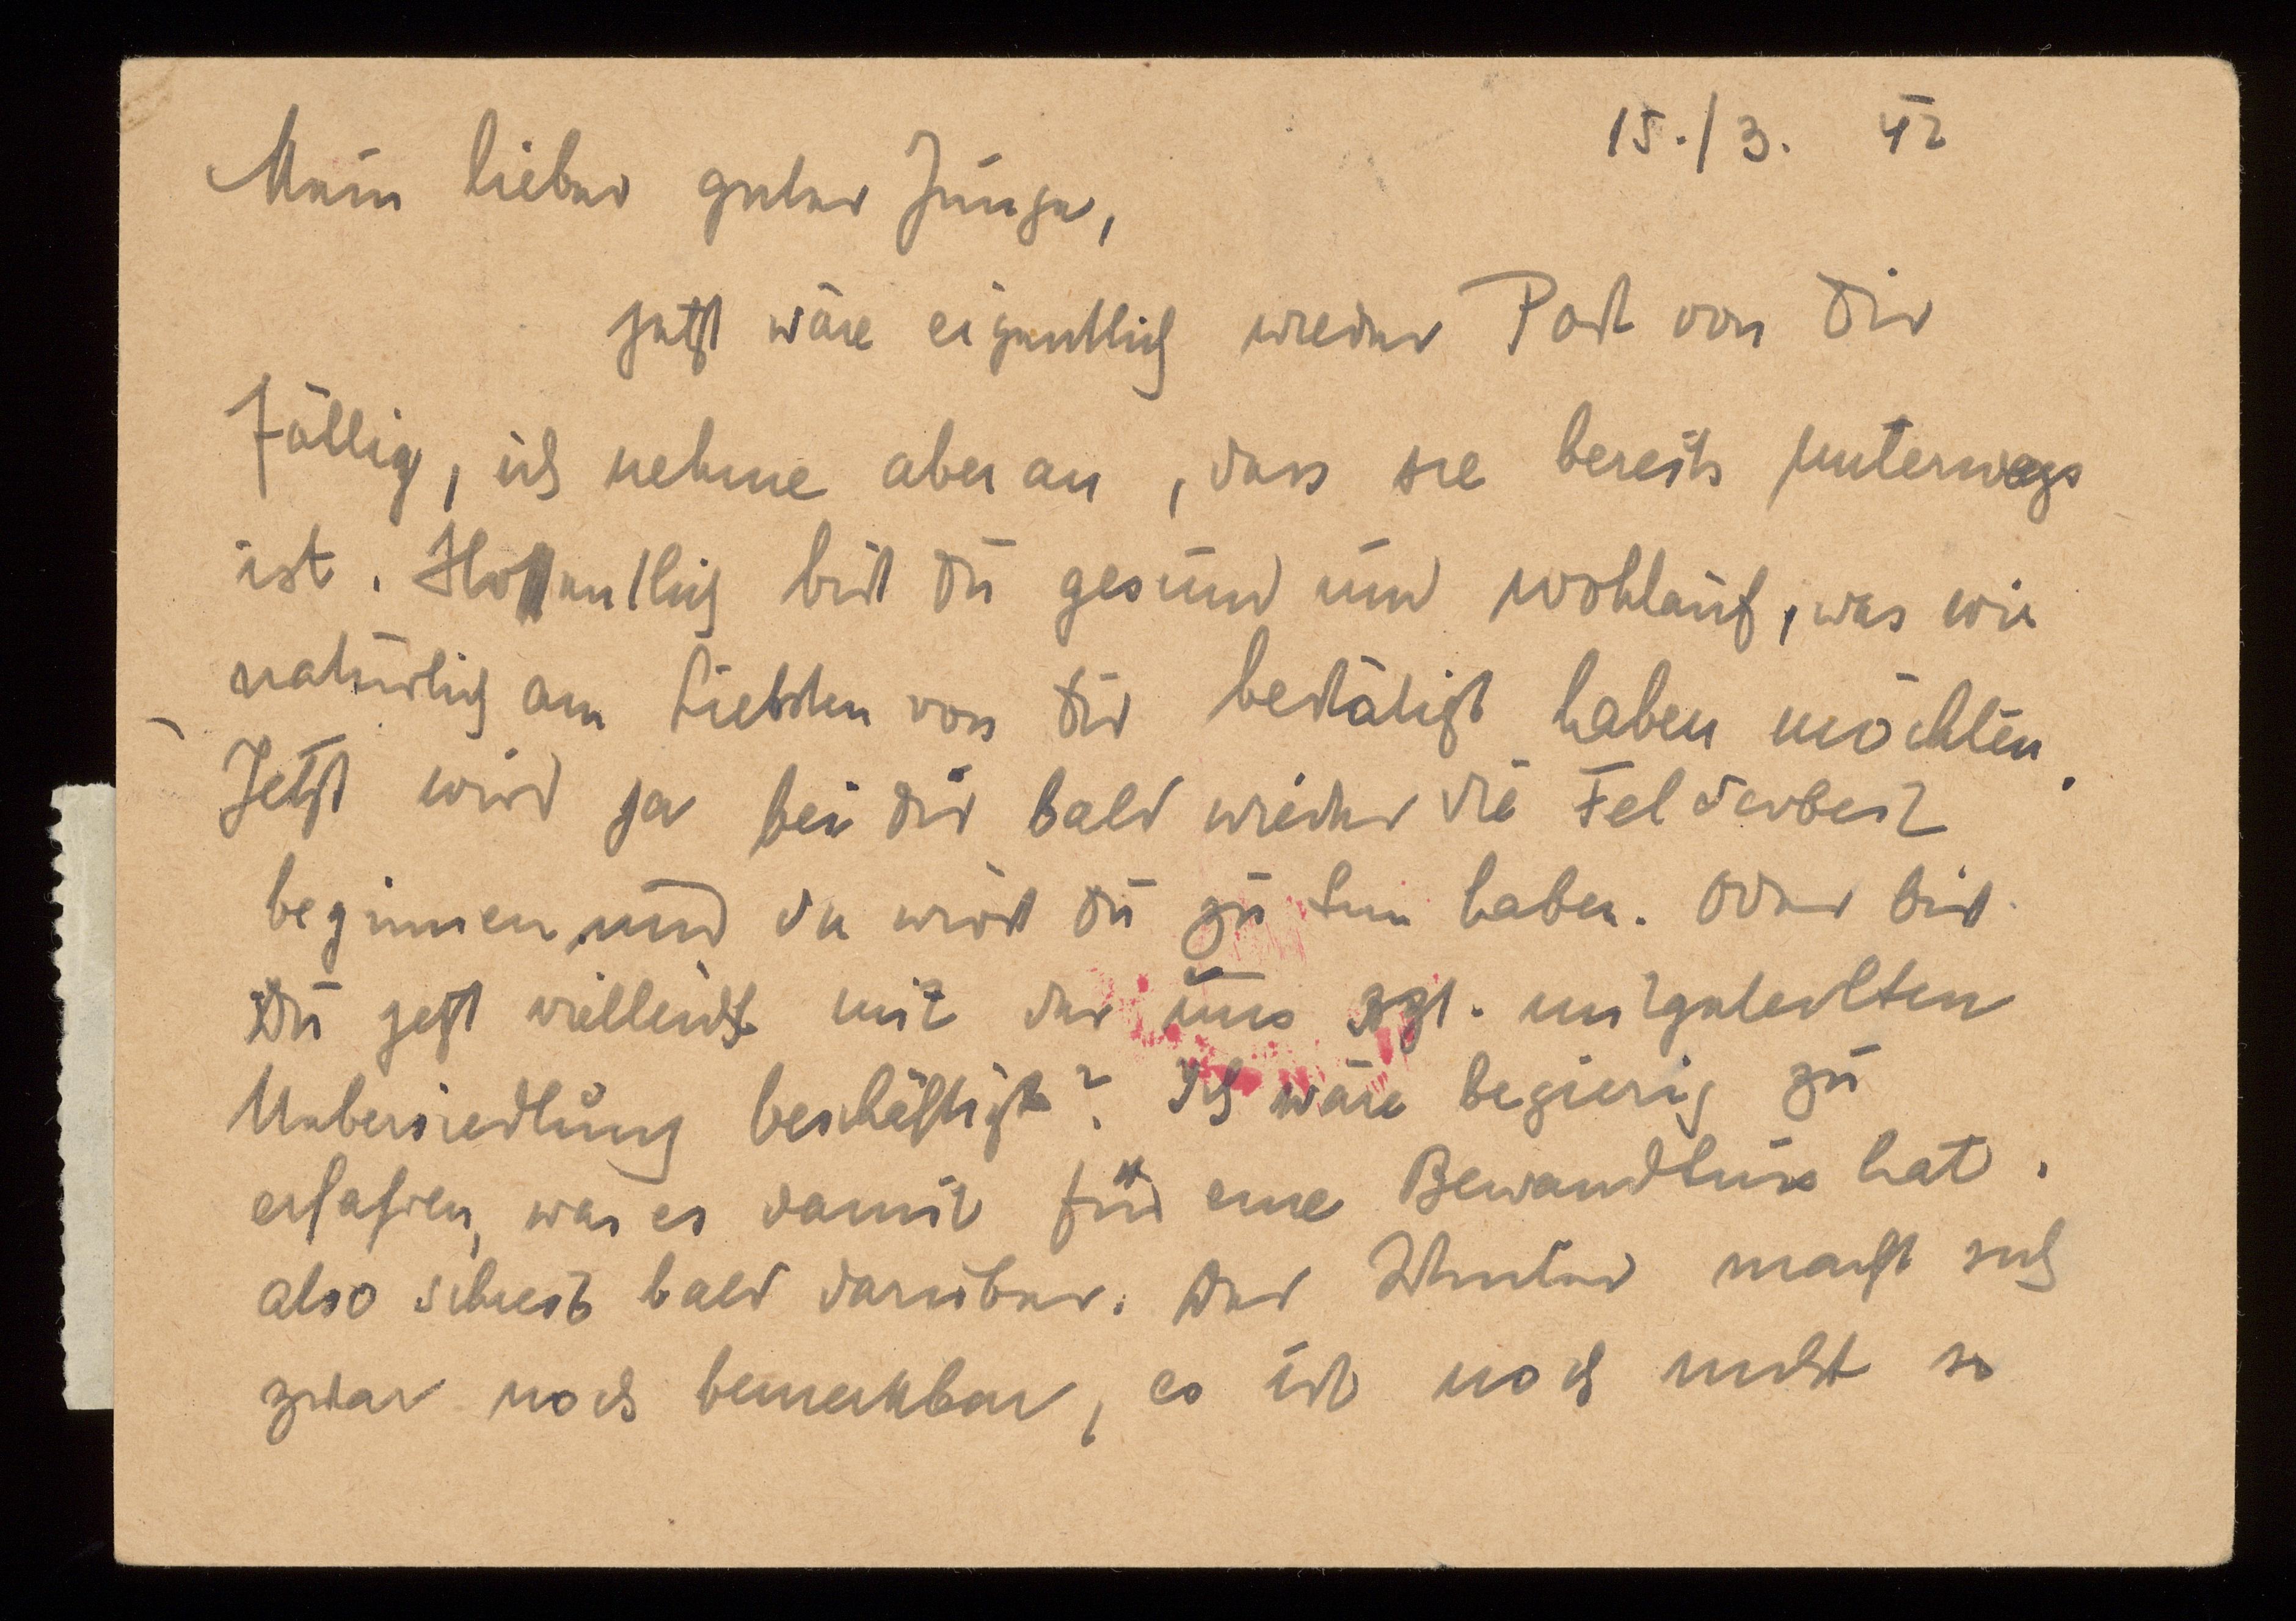 15./3. 42
Mein lieber guter Junge,
jetzt wäre eigentlich wieder Post von Dir
fällig, ich nehme aber an, dass sie bereits unterwegs
ist. Hoffentlich bist Du gesund und wohlauf, was wir
natürlich am Liebsten von Dir bestätigt haben möchten.
Jetzt wird ja bei Dir bald wieder die Feldarbeit
beginnen und da wirst Du zu tun haben. Oder bist
Du jetzt vielleicht mit der uns szt. mitgeteilten
Uebersiedlung beschäftigt? Ich wäre begierig zu
erfahren, was es damit für eine Bewandtnis hat.
also schreib bald darüber. Der Winter macht sich
zwar noch bemerkbar, es ist noch nicht so